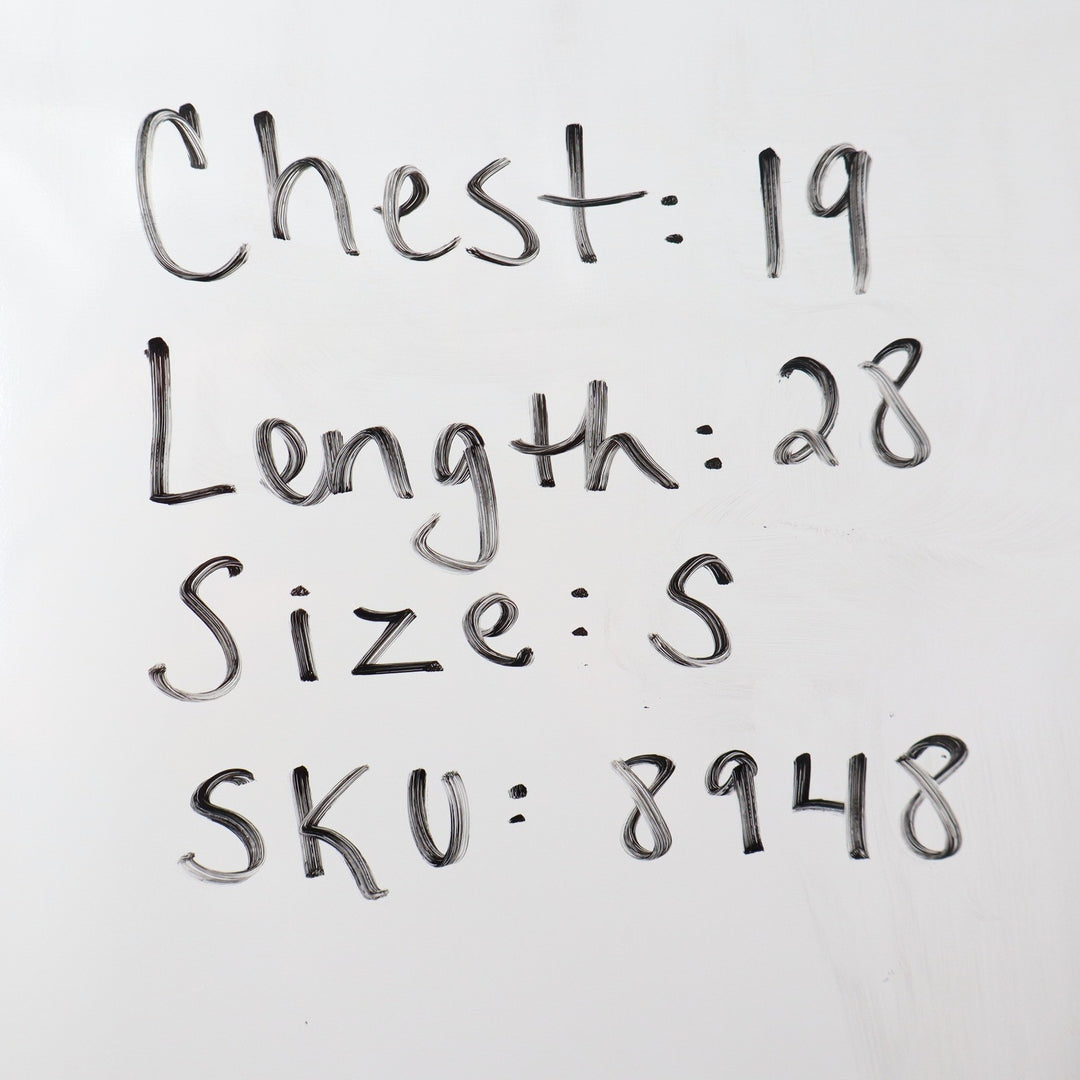 Chest: 19
Length: 28
Size: S
SKU: 8948